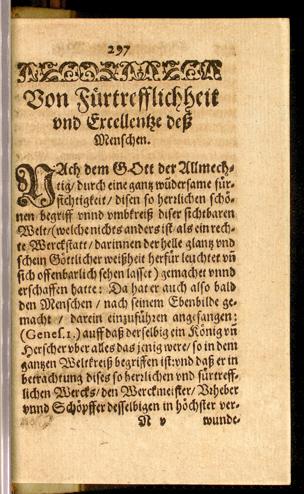 297
Von Fürtrefflichheit
vnd Excellentze deß
Menschen.
NAch dem GOtt der Allmech-
tig/ durch eine gantz wũdersame für-
sichtigkeit/ disen so herrlichen schö-
nen begriff vnnd vmbkreiß diser sichtbaren
Welt/ (welche nichts anders ist/ als ein rech-
te Werckstatt/ darinnen der helle glantz vnd
schein Göttlicher weißheit herfür leuchtet vñ
sich offenbarlich sehen lasset) gemachet vnnd
erschaffen hatte: Da hat er auch also bald
den Menschen/ nach seinem Ebenbilde ge-
macht/ darein einzuführen angefangen:
(Genes.1.) auff daß derselbig ein König vñ
Herscher vber alles das jenig were/ so in dem
gantzen Weltkreiß begriffen ist: vnd daß er in
betrachtung dises so herrlichen vnd fürtreff-
lichen Wercks/ den Werckmeister/ Vrheber
vnnd Schöpffer desselbigen in höchster ver-
N v wunde-